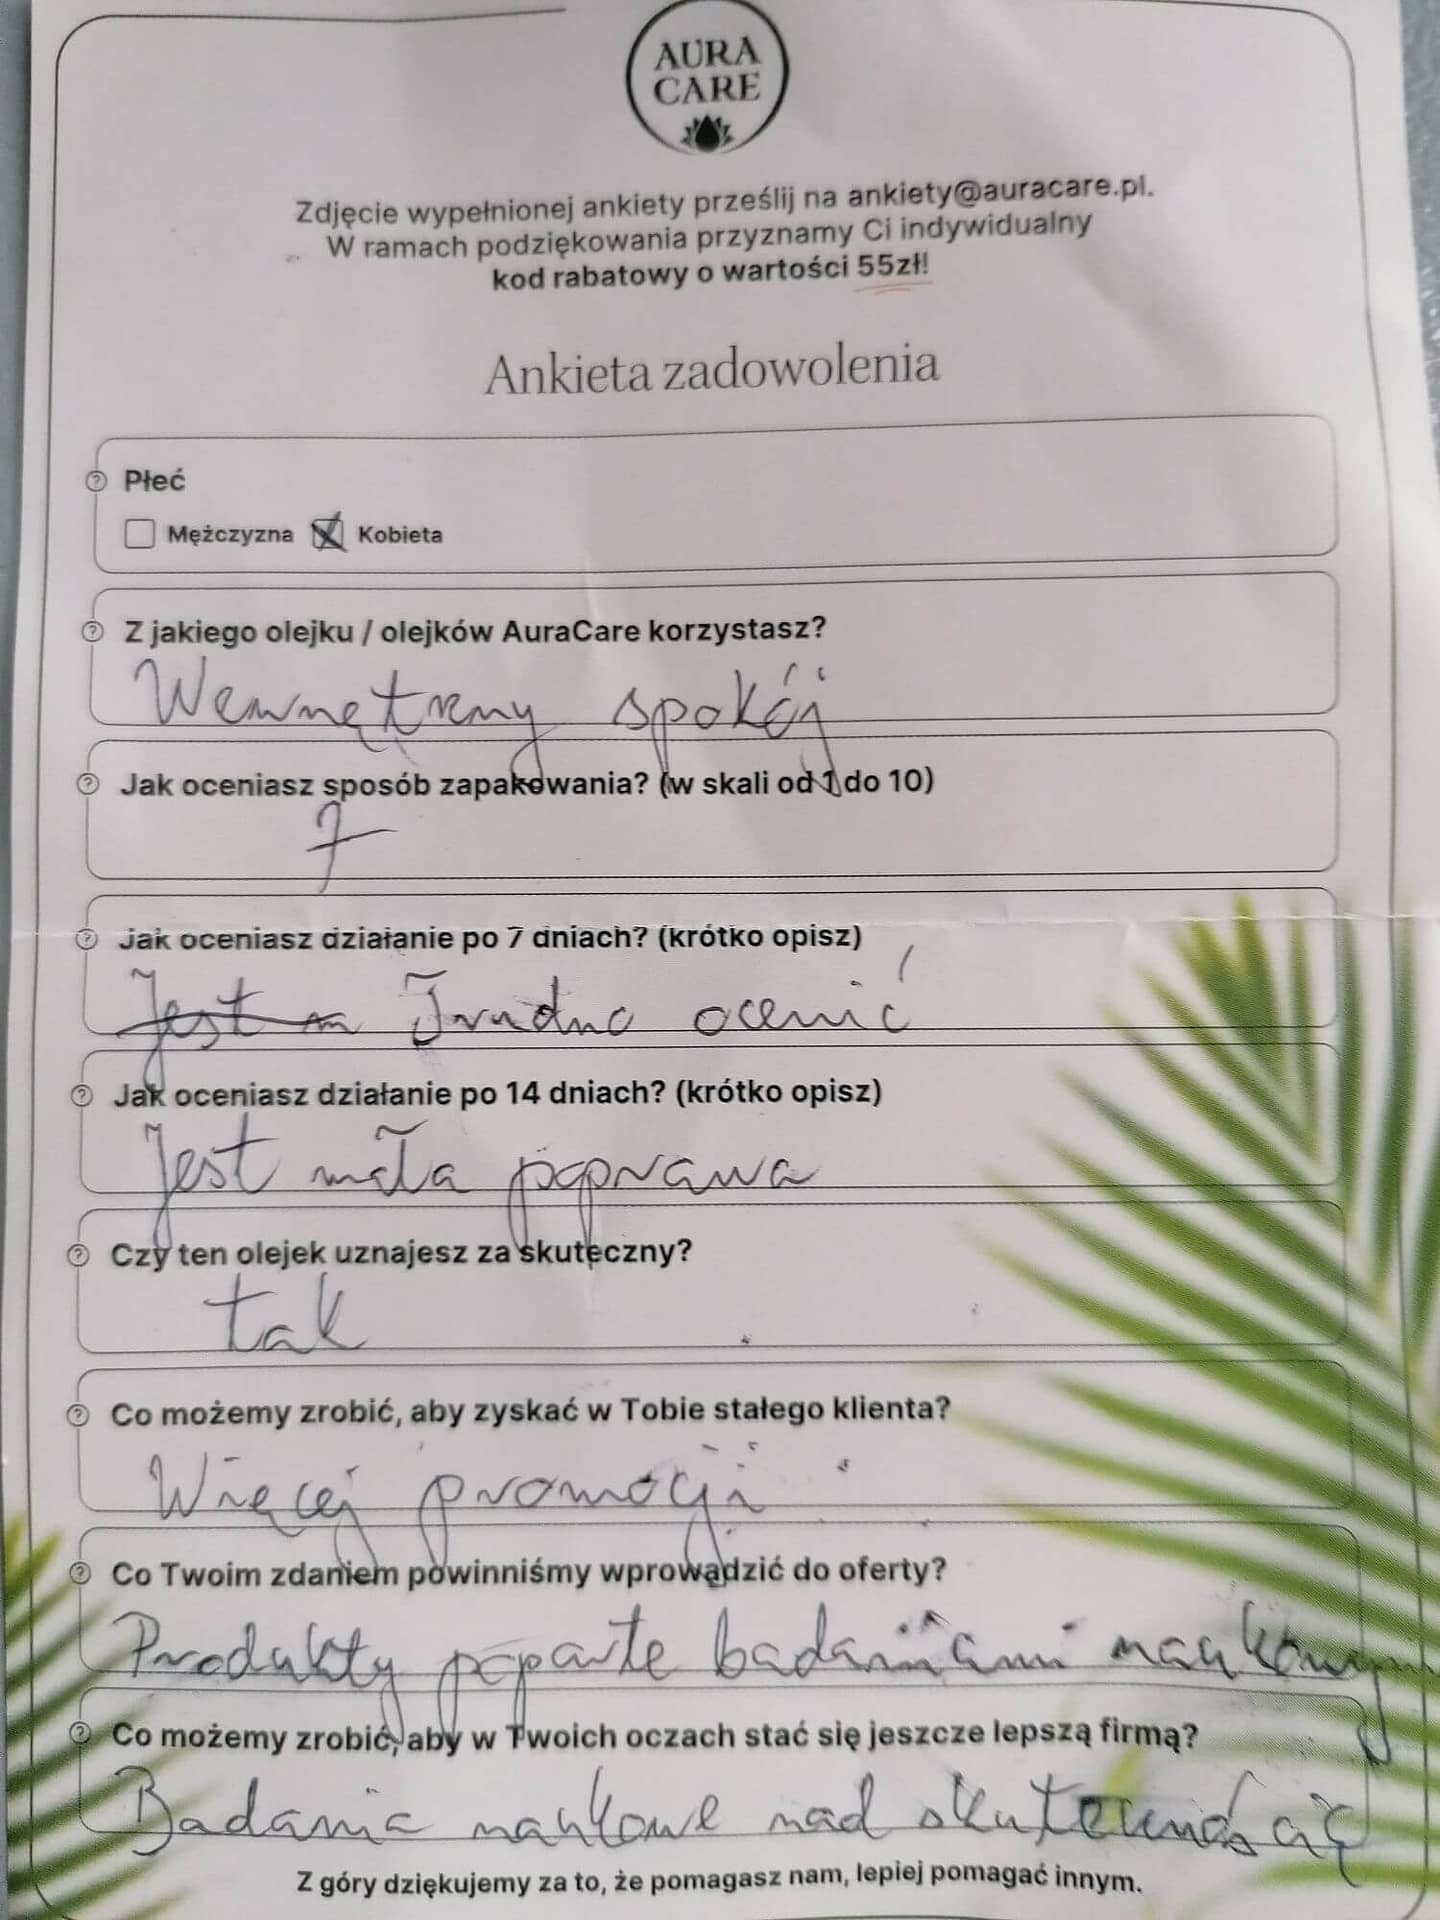 AURA
CARE
Zdjęcie wypełnionej ankiety prześlij na ankiety@auracare.pl.
W ramach podziękowania przyznamy Ci indywidualny
kod rabatowy o wartości 55zł!
Ankieta zadowolenia
Płeć
Mężczyzna Kobieta
Z jakiego olejku / olejków AuraCare korzystasz?
Wewnętrzny spokój
Jak oceniasz sposób zapakowania? (w skali od 1 do 10)
7
Jak oceniasz działanie po 7 dniach? (krótko opisz)
Jest m Trudno ocenić
Jak oceniasz działanie po 14 dniach? (krótko opisz)
Jest mała poprawa
Czy ten olejek uznajesz za skuteczny?
tak
Co możemy zrobić, aby zyskać w Tobie stałego klienta?
Więcej promocji
Co Twoim zdaniem powinniśmy wprowadzić do oferty?
Produkty poparte badaniami
Co możemy zrobić, aby w Twoich oczach stać się jeszcze lepszą firmą?
Badania naukowe nad skutecznością
Z góry dziękujemy za to, że pomagasz nam, lepiej pomagać innym.